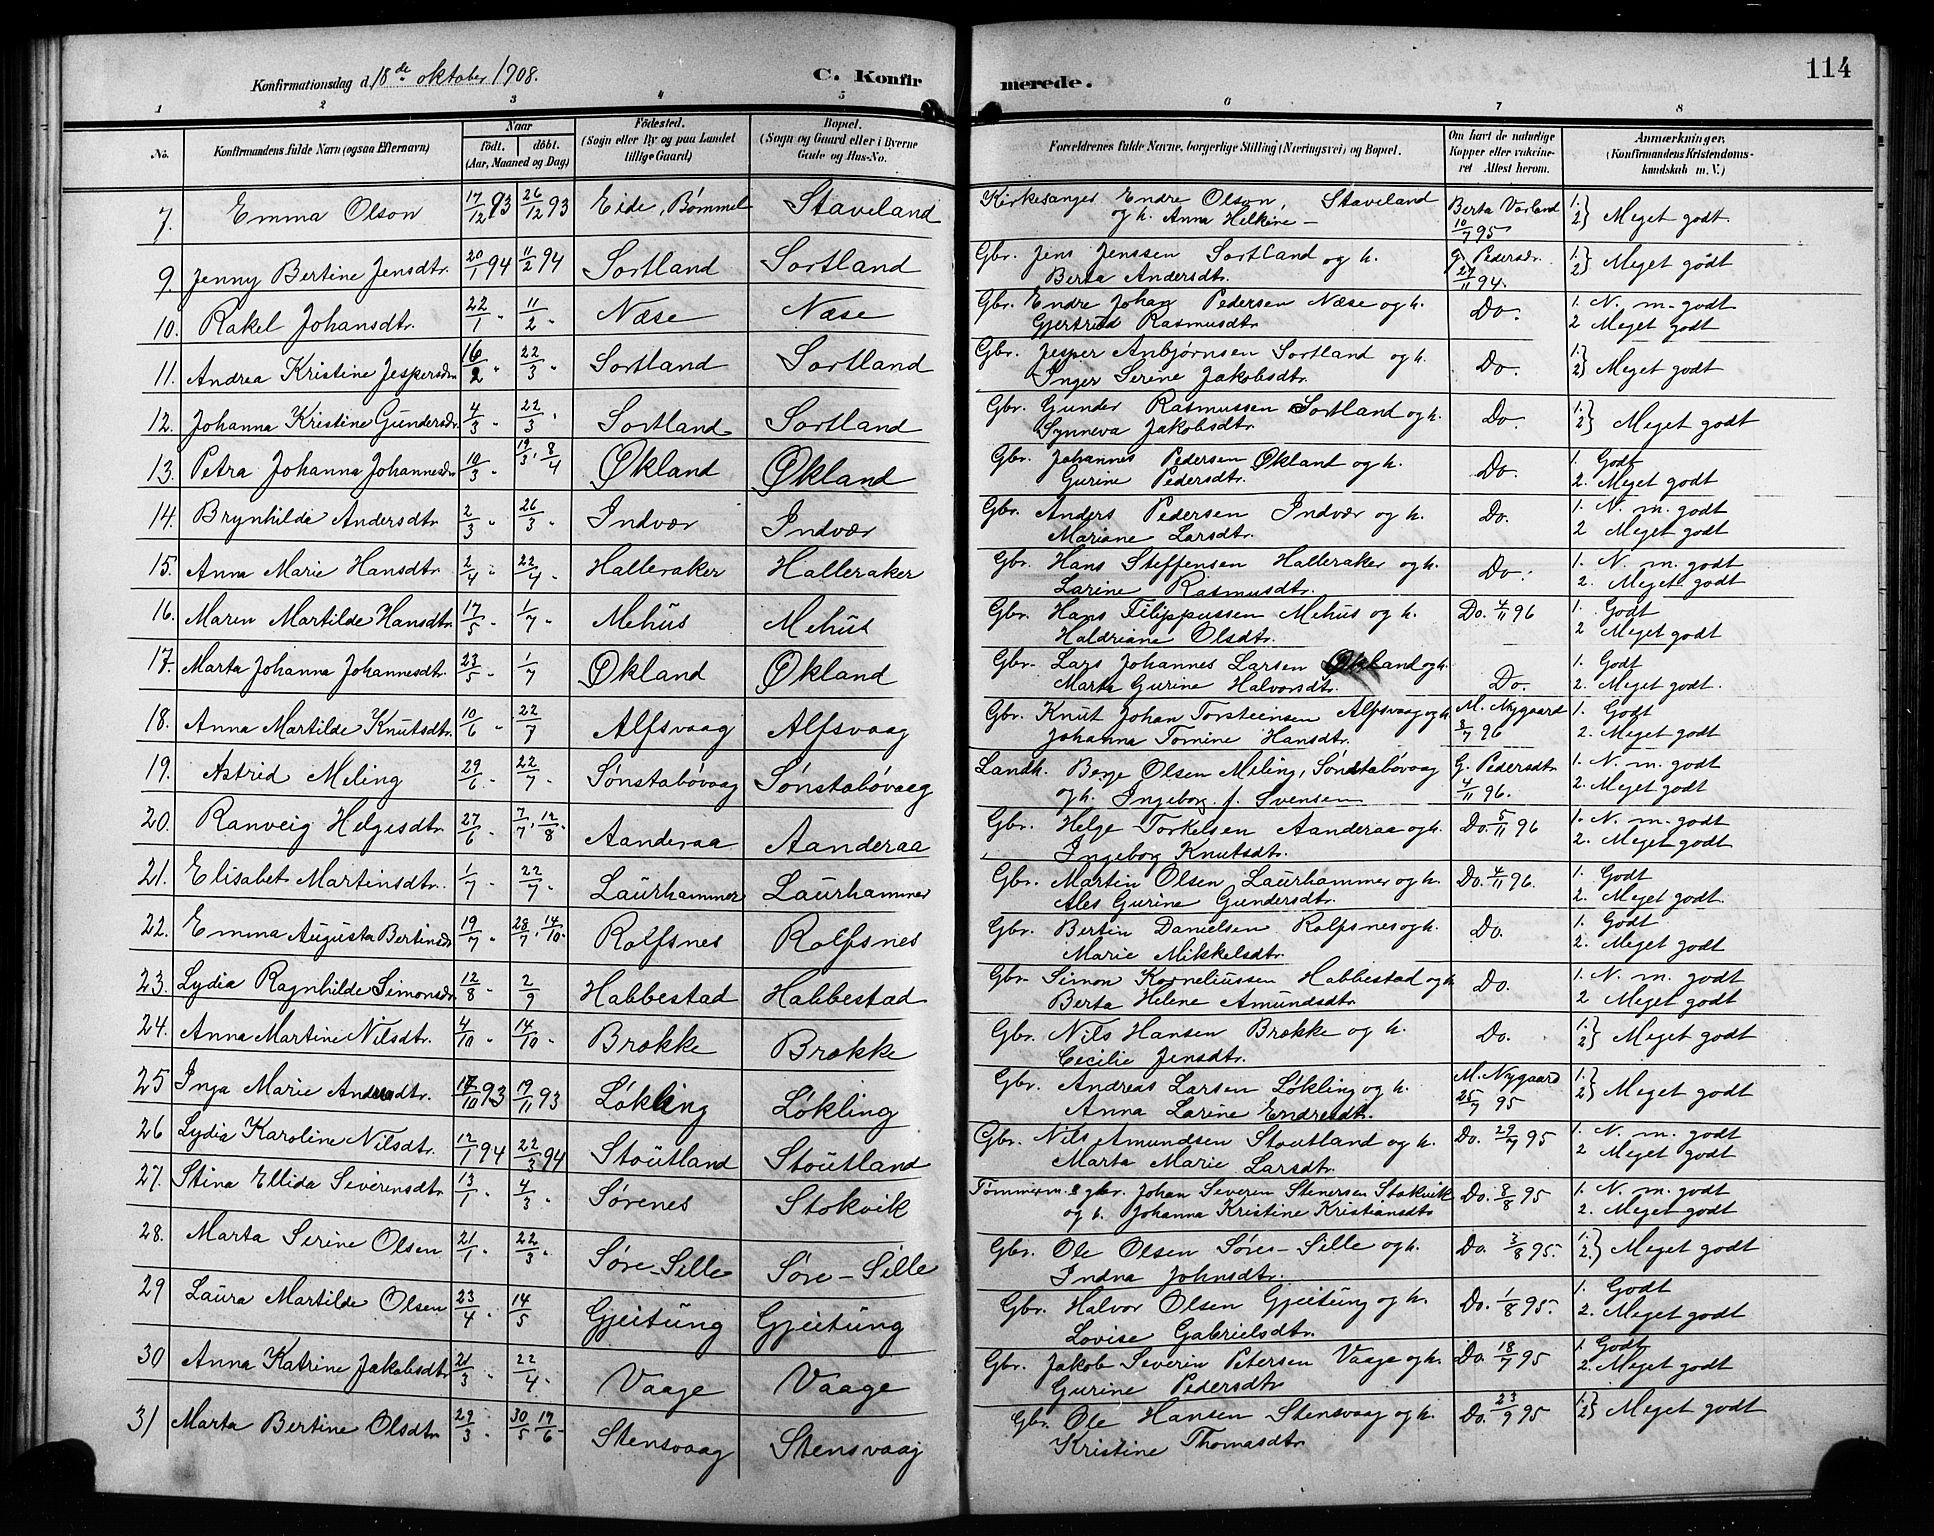 Konfirmationsdag d. 18de oktober 1908.
C. Konfirmerede.
114
1 2 3 4 5 6 7 8
No. Konfirmandens fulde Navn (ogsaa Efternavn) Naar født. døbt. (Aar, Maaned og Dag) Fødested. (Sogn eller By og paa Landet tillige Gaard) Bopæl. (Sogn og Gaard eller i Byerne Gade og Hus-No. Forældrenes fulde Navne, borgerlige Stilling (Næringsvei) og Bopæl. Om havt de naturlige Kopper eller vakcineret Attest herom. Anmærkninger. (Konfirmandens Kristendomskundskab m. V.)
7. Emma Olson 17/12 93 26/12 93 Eide, Bömmel Staveland Kirkesanger Endre Olson, Staveland Berta Vorland 1. 2} Meget godt.
og h. Anna Helkine – 10/7 95
9. Jenny Bertine Jensdtr. 20/1 94 11/2 94 Sortland Sortland Gbr. Jens Jenssen Sortland og h. G. Pedersdr. 1. 2} Meget godt
Berta Andersdtr. 27/11 94.
10. Rakel Johansdtr. 22/1 " 11/2 " Næse Næse Gbr. Endre Johan Pedersen Næse og h. Do. 1. N. m. godt
Gjertrud Rasmusdtr. 2 Meget godt
11. Andrea Kristine Jespersdr 16/2 " 22/3 " Sortland Sortland Gbr. Jesper Anbjørnsen Sortland og h. Do. 1. 2} Meget godt
Inger Serine Jakobsdtr.
12. Johanna Kristine Gundersdr. 4/3 " 22/3 " Sortland Sortland Gbr. Gunder Rasmussen Sortland og h. Do. 1. 2} Meget godt
Synneva Jakobsdtr.
13. Petra Johanna Johannesdr 10/3 " 19/3, 8/4 Økland Økland Gbr. Johannes Pedersen Økland og h. Do. 1. Godt
Gurine Pedersdtr. 2. Meget godt
14. Brynhilda Andersdtr 2/3 " 26/3 " Indvær Indvær Gbr. Anders Pedersen Indvær og h. Do. 1. N. m. godt
Mariane Larsdtr. 2 Meget godt
15. Anna Marie Hansdtr. 2/4 " 22/4 " Halleraker Halleraker Gbr. Hans Steffensen Halleraker og h. Do. 1. N. m. godt
Larine Rasmusdtr. 2. Meget godt
16. Maren Martilde Hansdtr. 17/5 " 1/7 " Mehus Mehus Gbr. Hans Filippussen Mehus og h. Do. 4/11 96 1. Godt
Haldriane Olsdtr. 2 Meget godt
17. Marta Johanna Johannesdtr. 23/5 " 1/7 Økland Økland Gbr. Lars Johannes Larsen Økland og h. Do. 1. Godt
Marta Gurine Halvorsdtr. 2. Meget godt.
18. Anna Martilde Knutsdtr. 10/6 " 22/7 Alfsvaag Alfsvaag Gbr. Knut Johan Torsteinsen Alfsvaag og h. M. Nygaard 1. Godt
Johanna Tomine Hansdtr. 8/7 96 2. Meget godt
19. Astrid Meling 29/6 " 22/7 " Sönstabövaag Sönstabövaag Landh. Berje Olsen Meling, Sönstabövaag G. Pedersdtr 1. N. m. godt
og h. Ingeborg f. Svensen 4/11 96. 2. Meget godt
20. Ranveig Helgesdtr. 27/6 " 7/7, 12/8 " Aanderaa Aanderaa Gbr. Helge Torkelsen Aanderaa og h. Do. 5/11 96 1. N. m. godt
Ingeborg Knutsdtr. 2. Meget godt
21. Elisabet Martinsdtr. 1/7 " 22/7 " Laurhammer Laurhammer Gbr. Martin Olsen Laurhammer og h. Do. 4/11 96. 1. Godt
Ales Gurine Gundersdtr. 2. Meget godt
22. Emma Augusta Bertinsdr 19/7 " 28/7, 14/10 Rolfsnes Rolfsnes Gbr. Bertin Danielsen Rolfsnes og h. Do. 1. Godt
Marie Mikkelsdtr. 2. Meget godt
23. Lydia Ragnhilde Simonsdr 12/8 " 2/9 Habbestad Habbestad Gbr. Simon Korneliussen Habbestad og h Do. 1. N. m. godt
Berta Helene Amundsdtr. 2 Meget godt
24. Anna Martine Nilsdtr. 4/10 " 14/10 " Brokke Brokke Gbr. Nils Hansen Brokke og h. Do. 1. 2} Meget godt
Cecilie Jensdtr.
25 Inga Marie Andreasdtr. 17/10 93 19/11 93 Løkling Løkling Gbr. Andreas Larsen Løkling og h. M. Nygaard 1. 2} Meget godt
Anna Larine Endresdtr. 25/7 95
26 Lydia Karoline Nilsdtr. 12/1 94 22/3 94 Stoutland Stoutland Gbr. Nils Amundsen Stoutland og h. Do. 29/7 95 1. N. m. godt
Marta Marie Larsdtr. 2 Meget godt
27. Stina Ellida Severinsdtr 13/1 " 4/3 " Sørenes Stokvik Tømmerm. & gbr. Johan Severin Stenersen Stokvik Do. 8/8 95 1. N. m. godt
og h. Johanna Kristine Kristiansdtr 2. Meget godt
28. Marta Serine Olsen 21/1 " 22/3 " Søre-Sille Søre-Sille Gbr. Ole Olsen Søre-Sille og h. Do. 3/8 95. 1. 2.} Meget godt
Indna Johnsdtr.
29 Laura Martilde Olsen 23/4 " 14/5 Gjeitung Gjeitung Gbr. Halvor Olsen Gjeitung og h. Do. 1/8 95. 1. Godt
Lovise Gabrielsdtr. 2. Meget godt
30 Anna Katrine Jakobsdtr 21/3 " 22/4 " Vaage Vaage Gbr. Jakob Severin Petersen Vaage og h. Do. 18/7 95 1. Godt
Gurine Pedersdtr 2. Meget godt
31 Marta Bertine Olsdtr. 29/3 " 30/5 17/6 Stensvaag Stensvaag Gbr. Ole Hansen Stensvaag og h. Do. 23/9 95 1. 2} Meget godt
Kristine Thomasdtr.